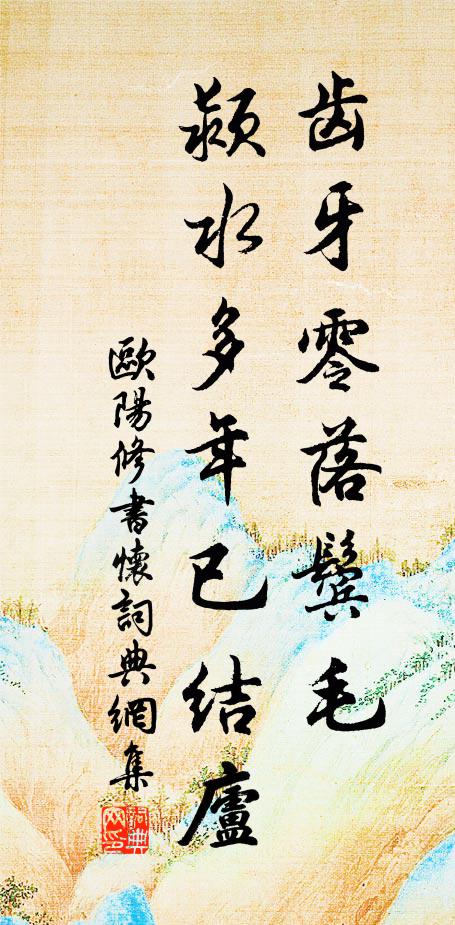 齿牙零落鬢毛
潁水多年已結廬
歐陽修書懷詞典網集
詞典網印